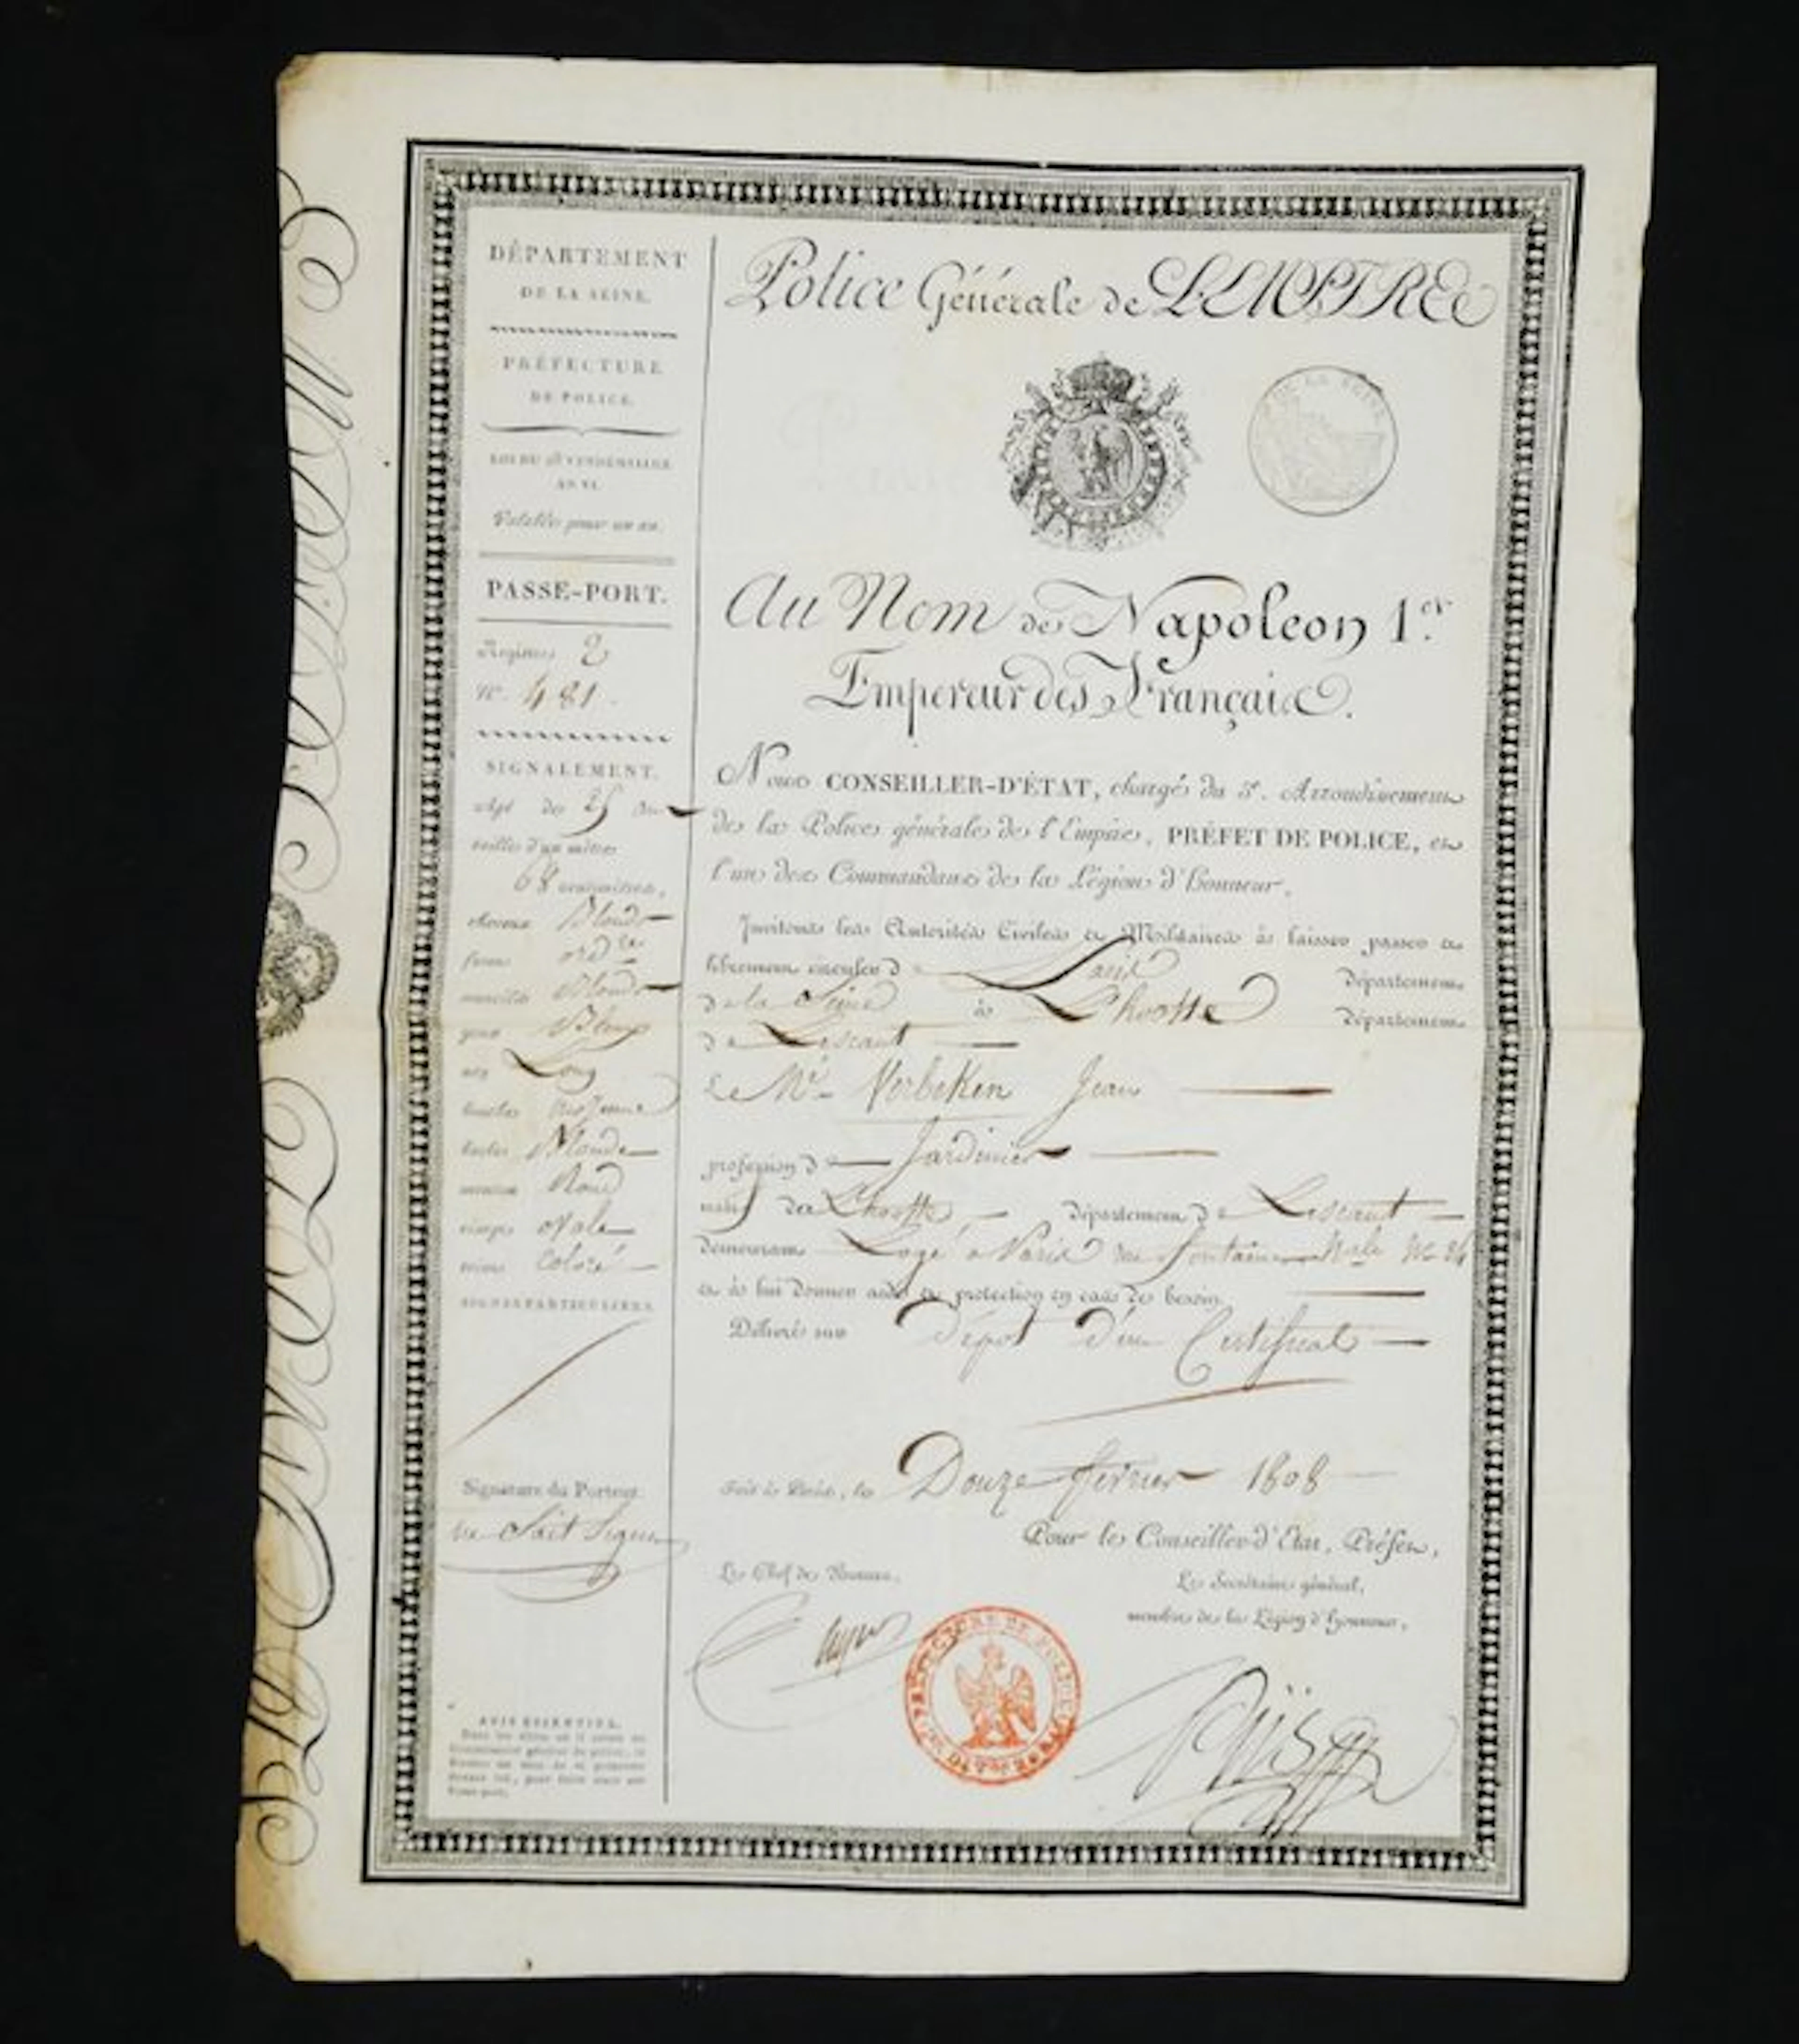 DÉPARTEMENT
DE LA SEINE.
PRÉFECTURE
DE POLICE.
LOI DU VENDÉMIAIRE
AN VI.
Valable pour un an.
PASSE-PORT.
Registre 2
N.º 481.
SIGNALEMENT.
Agé de 25 ans
taille d'un mètre
68 centimètres,
cheveux Blonds
front ord.re
sourcils Blonds
yeux Bleux
nez Long
bouche moyenne
barbe Blonde
menton Rond
visage ovale
teint Coloré
SIGNES PARTICULIERS.
Signature du Porteur.
ne Sait Signer
AVIS ESSENTIEL.
Police Générale de L'EMPIRE
Au Nom de Napoleon 1.er
Empereur des Français.
Nous CONSEILLER-D'ÉTAT, chargé du 3e. Arrondissement
de la Police générale de l'Empire, PRÉFET DE POLICE, et
l'un des Commandans de la Légion d'honneur,
Invitons les Autorités Civiles et Militaires à laisser passer et
librement circuler de Paris Département
de la Seine à Département
de Lescaut
le Mr. Verbeken Jean
profession de Jardinier
natif de département de Lescaut
demeurant Logé a Paris rue Fontaine Nale No
et à lui donner aide et protection en cas de besoin.
Délivré sur Dépot d'un Certificat
Fait à Paris, le Douze fevrier 1808
Pour le Conseiller d'Etat, Préfet,
Le Chef de Bureau,
Le Secrétaire général,
membre de la Légion d'honneur,
PRÉFECTURE DE POLICE